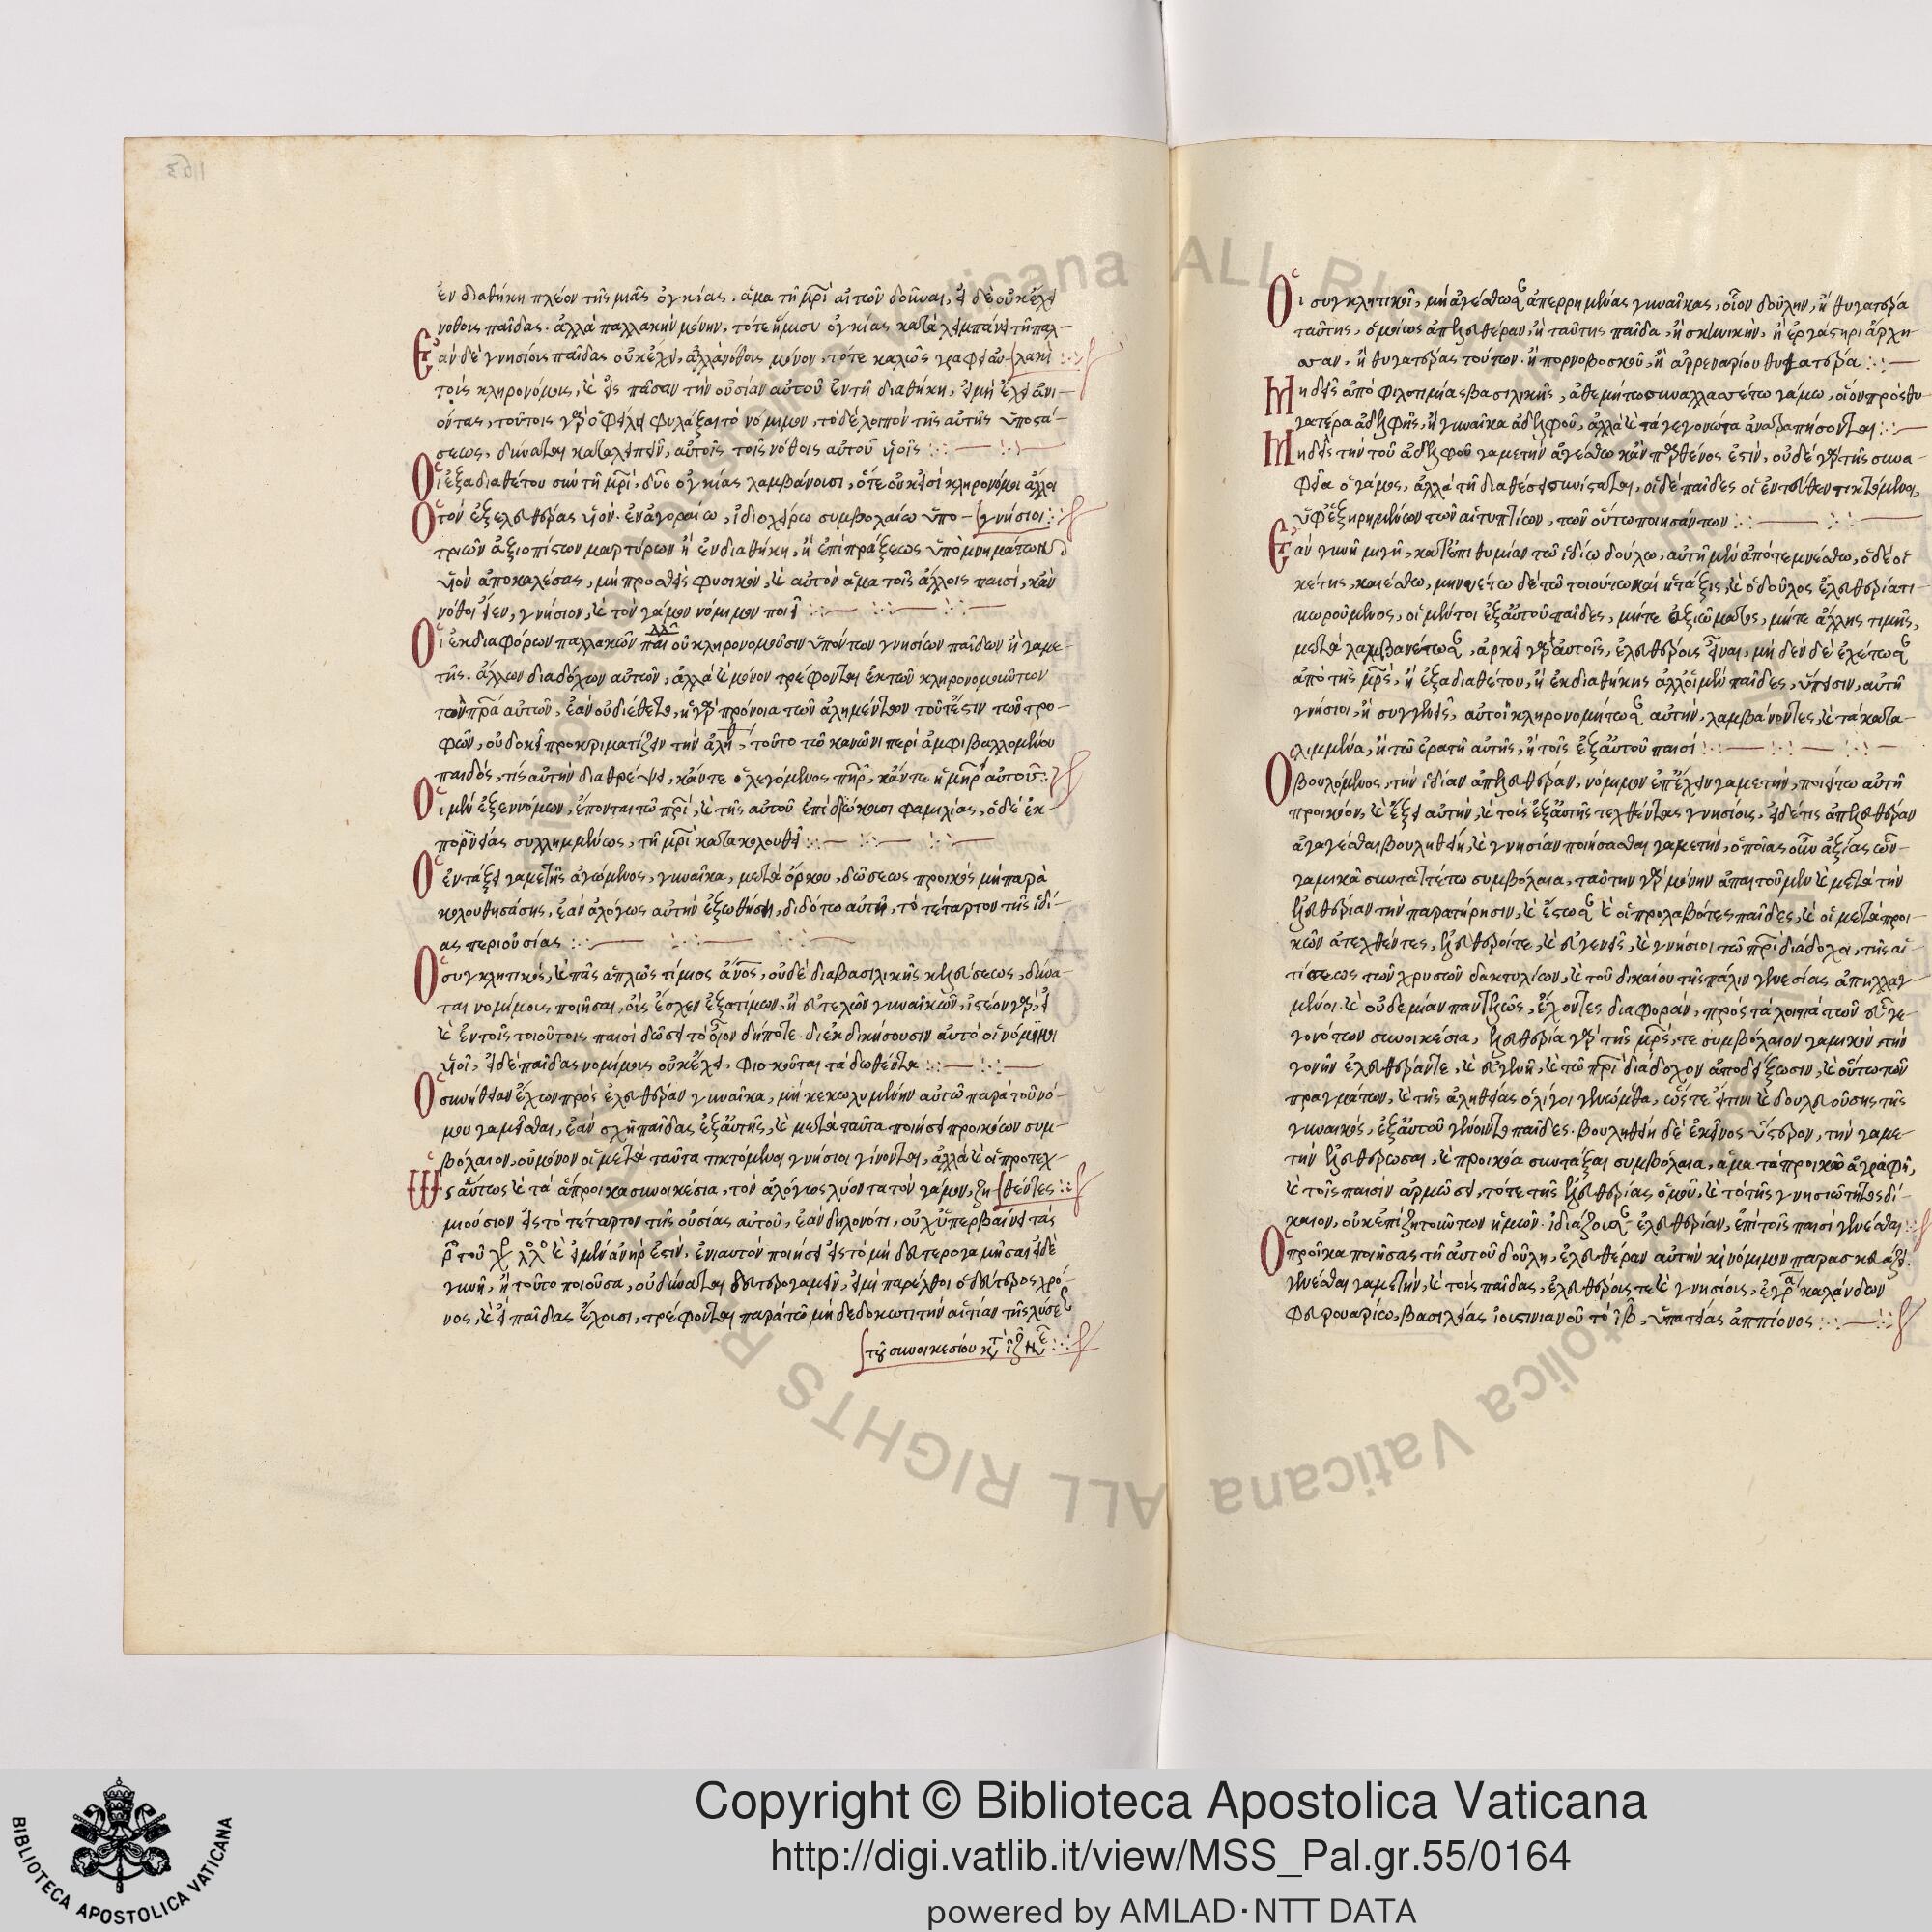 ἐν διαθήκη πλέον τῆς μιᾶς ὀγκίας. ἅμα τῆ μρὶ αὐτῶν δοῦναι, εἰ δὲ οὐκ ἔχει
νόθους παῖδας. ἀλλὰ παλλακὴν μόνην, τότε ἥμισυ ὀγκίας καταλιμπάνει τῆ παλ-
Ἐὰν δὲ γνησίους παῖδας οὐκ ἔχει, ἀλλὰ νόθους μόνον, τότε καλῶς γραφει λακῆ
τοὺς κληρονόμους, καὶ εἰς πᾶσαν τὴν οὐσίαν αὐτοῦ ἐν τῆ διαθήκη, εἰ μὴ ἔχει ἀνι-
όντας, τούτοις γὰρ ὀφείλει φυλάξαι τὸ νόμιμον, τὸ δὲ λοιπὸν τῆς αὐτῆς ὑποστά-
σεως, δύναται καταλιπεῖν, αὐτοῖς τοῖς νόθοις αὐτοῦ υἱοῖς
Οἱ ἐξ ἀδιαθέτου σὺν τῆ μρὶ, δύο ὀγκίας λαμβάνουσι, ὅτε οὐκ εἰσὶ κληρονόμοι ἄλλοι
Ὁ τὸν ἐξ ἐλευθέρας υἱὸν. ἐν ἀγοραίω, ἰδιοχείρω συμβολαίω ὑπο- γνήσιοι
τριῶν ἀξιοπίστων μαρτύρων ἢ ἐν διαθήκη, ἢ ἐπὶ πράξεως ὑπομνημάτων
υἱὸν ἀποκαλέσας, μὴ προσθεὶς φυσικὸν, καὶ αὐτὸν ἅμα τοῖς ἄλλοις παισὶ, κἂν
νόθοι εἶεν, γνήσιον, καὶ τὸν γάμον νόμιμον ποιεῖ
Οἱ ἐκ διαφόρων παλλακῶν παι οὐ κληρονομοῦσιν ὑπόντων γνησίων παίδων ἢ γαμε-
τῆς. ἄλλων διαδόχων αὐτῶν, ἀλλὰ καὶ μόνον τρέφονται ἐκ τῶν κληρονομούντων
τῶν πρα αὐτῶν, ἐὰν οὐ διέθετο, ἡ γὰρ πρόνοια τῶν ἀλημέντων τοῦτ' ἔστιν τῶν τρο-
φῶν, οὐ δοκεῖ προκριματίζειν τὴν ἀλη τοῦτο τῶ κανῶνι περὶ ἀμφιβαλλομένου
παιδὸς, τίς αὐτὴν διαθρέψει, κἄν τε ὁ λεγόμενος πηρ, κἄν τε ἡ μηρ αὐτοῦ
Οἱ μὲν ἐξ ἐννόμων, ἕπονται τῶ πρὶ, καὶ τῆς αὐτοῦ ἐπιδιώκουσι φαμιλίας, ὁ δὲ ἐκ
πορνείας συλλημμένως, τῆ μρὶ κατακολουθεῖ
Ὁ ἐν τάξει γαμετῆς ἀγόμενος, γυναῖκα, μετὰ ὅρκου, δώσεως προικὸς μὴ παρα
κολουθησάσης, ἐὰν ἀλόγως αὐτὴν ἐξωθήσῃ, διδότω αὐτῆ, τὸ τέταρτον τῆς ἰδί-
ας περιουσίας
Ὁ συγκλητικὸς, καὶ πᾶς ἁπλῶς τίμιος ἄνος, οὐδὲ διὰ βασιλικῆς κελεύσεως, δύνα-
ται νομίμους ποιῆσαι, οὓς ἔσχεν ἐξ ἀτίμων, ἢ εὐτελῶν γυναικῶν, ἰστέον γὰρ, εἰ
καὶ ἐν τοῖς τοιούτοις παισὶ δώσει τὸ οἷον δήποτε. διεκδικήσουσιν αὐτὸ οἱ νόμιμοι
υἱοὶ, εἰ δὲ παῖδας νομίμους οὐκ ἔχει, φισκοῦται τὰ δωθέντα
Ὁ συνήθειαν ἔχων πρὸς ἐλευθέραν γυναῖκα, μὴ κεκωλυμένην αὐτῶ παρὰ τοῦ νό-
μου γαμεῖσθαι, ἐὰν σχῆ παῖδας ἐξ αὐτῆς, καὶ μετὰ ταῦτα ποιήσει προικῶον συμ-
βόλαιον, οὐ μόνον οἱ μετὰ ταῦτα τικτόμενοι γνήσιοι γίνονται, ἀλλὰ καὶ οἱ προτεχ-
Ὡσαύτως καὶ τὰ ἄπροικα συνοικέσια, τὸν ἀλόγως λύοντα τὸν γάμον, ζη- θέντες
μιοῦσιν εἰς τὸ τέταρτον τῆς οὐσίας αὐτοῦ, ἐὰν δηλονότι, οὐχ ὑπερβαίνει τὰς
καὶ εἰ μὲν ἀνὴρ ἐστὶν, ἐνιαυτὸν ποιήσει εἰς τὸ μὴ δευτερογαμῆσαι εἰ δὲ
γυνὴ, ἡ τοῦτο ποιοῦσα, οὐ δύναται δευτερογαμεῖν, εἰ μὴ παρέλθοι ὁ δεύτερος χρό-
νος, καὶ εἰ παῖδας ἔχουσι, τρέφονται παρὰ τῶ μὴ δεδωκότι τὴν αἰτίαν τῆς λύσεως
τοῦ συνοικεσίου
Οἱ συγκλητικοὶ, μὴ ἀγέσθωσαν ἀπερρημένας γυναῖκας, οἷον δούλην, ἢ θυγατέρα
ταύτης, ὁμοίως ἀπελευθέραν, ἢ ταύτης παῖδα, ἢ σκηνικὴν, ἢ ἐργαστηριάρχη-
σαν, ἢ θυγατέρας τούτων. ἢ πορνοβοσκοῦ, ἢ ἀρρεναρίου θυγατέρα
Μηδεὶς ἀπὸ φιλοτιμίας βασιλικῆς, ἀθεμήτως συναλλασσέτω γάμω, οἷον πρὸς θυ-
γατέρα ἀδελφῆς, ἢ γυναῖκα ἀδελφοῦ, ἀλλὰ καὶ τὰ γεγονῶτα ἀνατραπήσονται
Μηδεὶς τὴν τοῦ ἀδελφοῦ γαμετὴν ἀγέσθω κἂν παρθένος ἐστὶν, οὐδὲ γὰρ τῆς συνα-
φεία ὁ γάμος, ἀλλὰ τῆ διαθέσει συνίσταται, οἱ δὲ παῖδες οἱ ἐντεῦθεν τικτόμενοι,
ὑφεξηρημένων τῶν αἰγυπτίων, τῶν οὕτω ποιησάντων
Ἐὰν γυνὴ μιγῆ, κατ' ἐπιθυμίαν τῶ ἰδίω δούλω, αὐτὴ μὲν ἀποτεμνέσθω, ὁ δὲ οἰ
κέτης, καιέσθω, μηνυέτω δὲ τῶ τοιούτω καὶ ἡ τάξις, καὶ ὁ δοῦλος ἐλευθερία τι-
μωρούμενος, οἱ μέντοι ἐξ αὐτοῦ παῖδες, μήτε ἀξιώματος, μήτε ἄλλης τιμῆς,
μεταλαμβανέτωσαν, ἀρκεῖ γὰρ αὐτοῖς, ἐλευθέροις εἶναι, μηδὲν δὲ ἐχέτωσαν
ἀπὸ τῆς μρς, ἢ ἐξ ἀδιαθέτου, ἢ ἐκ διαθήκης ἀλλ' οἱ μὲν παῖδες, ὕπεισιν, αὐτῆ
γνήσιοι, ἢ συγγενεῖς, αὐτοὶ κληρονομείτωσαν αὐτὴν, λαμβάνοντες, καὶ τὰ κατα-
λιμμένα, ἢ τῶ ἐραστῆ αὐτῆς, ἢ τοῖς ἐξ αὐτοῦ παισὶ
Ὁ βουλόμενος, τὴν ἰδίαν ἀπελευθέραν, νόμιμον ἐπέχειν γαμετὴν, ποιείτω αὐτῆ
προικῶον, καὶ ἕξει αὐτὴν, καὶ τοὺς ἐξ αὐτῆς τεχθέντας γνησίους, εἰ δέ τις ἀπελευθέραν
ἀγαγέσθαι βουληθείη, καὶ γνησίαν ποιήσασθαι γαμετὴν, ὁποίας οὖν ἀξίας ὢν-
γαμικὰ συνταττέτω συμβόλαια, ταύτην γὰρ μόνην ἀπαιτοῦμεν καὶ μετὰ τὴν
ἐλευθερίαν τὴν παρατήρησιν, καὶ ἔστωσαν καὶ οἱ προλαβότες παῖδες, καὶ οἱ μετὰ προι-
κῶν ἀτεχθέντες, ἐλευθεροίτε, καὶ εὐγενεῖς, καὶ γνήσιοι τῶ πρὶ διάδοχοι, τῆς αἰ-
τίσεως τῶν χρυσῶν δακτυλίων, καὶ τοῦ δικαίου τῆς πάλιν γενεσίας ἀπηλλαγ-
μένοι. καὶ οὐδεμίαν παντελῶς, ἔχοντες διαφορὰν, πρὸς τὰ λοιπὰ τῶν εὐγε-
γονότων συνοικέσια, ἐλευθερία γὰρ τῆς μρς, τε συμβόλαιον γαμικὸν, τὴν
γονὴν ἐλευθεράντε, καὶ εὐγενῆ, καὶ τῶ πρὶ διάδοχον ἀποδείξωσιν, καὶ οὕτω τῶν
πραγμάτων, καὶ τῆς ἀληθείας ὀλίγοι γενώμεθα, ὥστε εἴ τινι καὶ δουλευούσης τῆς
γυναικὸς, ἐξ αὐτοῦ γένοιντο παῖδες. βουληθείη δὲ ἐκεῖνος ὕστερον, τὴν γαμε-
τὴν ἐλευθερῶσαι, καὶ προικῶα συντάξαι συμβόλαια, ἅμα τὰ προικῶα ἀγραφῆ,
καὶ τοῖς παισὶν ἁρμώσει, τότε τῆς ἐλευθερίας ὁμοῦ, καὶ τὸ τῆς γνησιώτητος δί-
καιον, οὐκ ἐπιζητούντων ἡμῶν. ἰδιάζουσαν ἐλευθερίαν, ἐπὶ τοῖς παισὶ γενέσθαι
Ὁ προῖκα ποιήσας τῆ αὐτοῦ δούλη, ἐλευθέραν αὐτὴν καὶ νόμιμον παρασκευάζει.
γενέσθαι γαμετὴν, καὶ τοὺς παῖδας, ἐλευθέρους τε καὶ γνησίους, ἐγρα καλάνδων
φευρουαρίω, βασιλείας ἰουστινιανοῦ τὸ ιβ, ὑπατείας ἀππίονος
Copyright © Biblioteca Apostolica Vaticana
http://digi.vatlib.it/view/MSS_Pal.gr.55/0164
powered by AMLAD·NTT DATA
BIBLIOTECA APOSTOLICA VATICANA